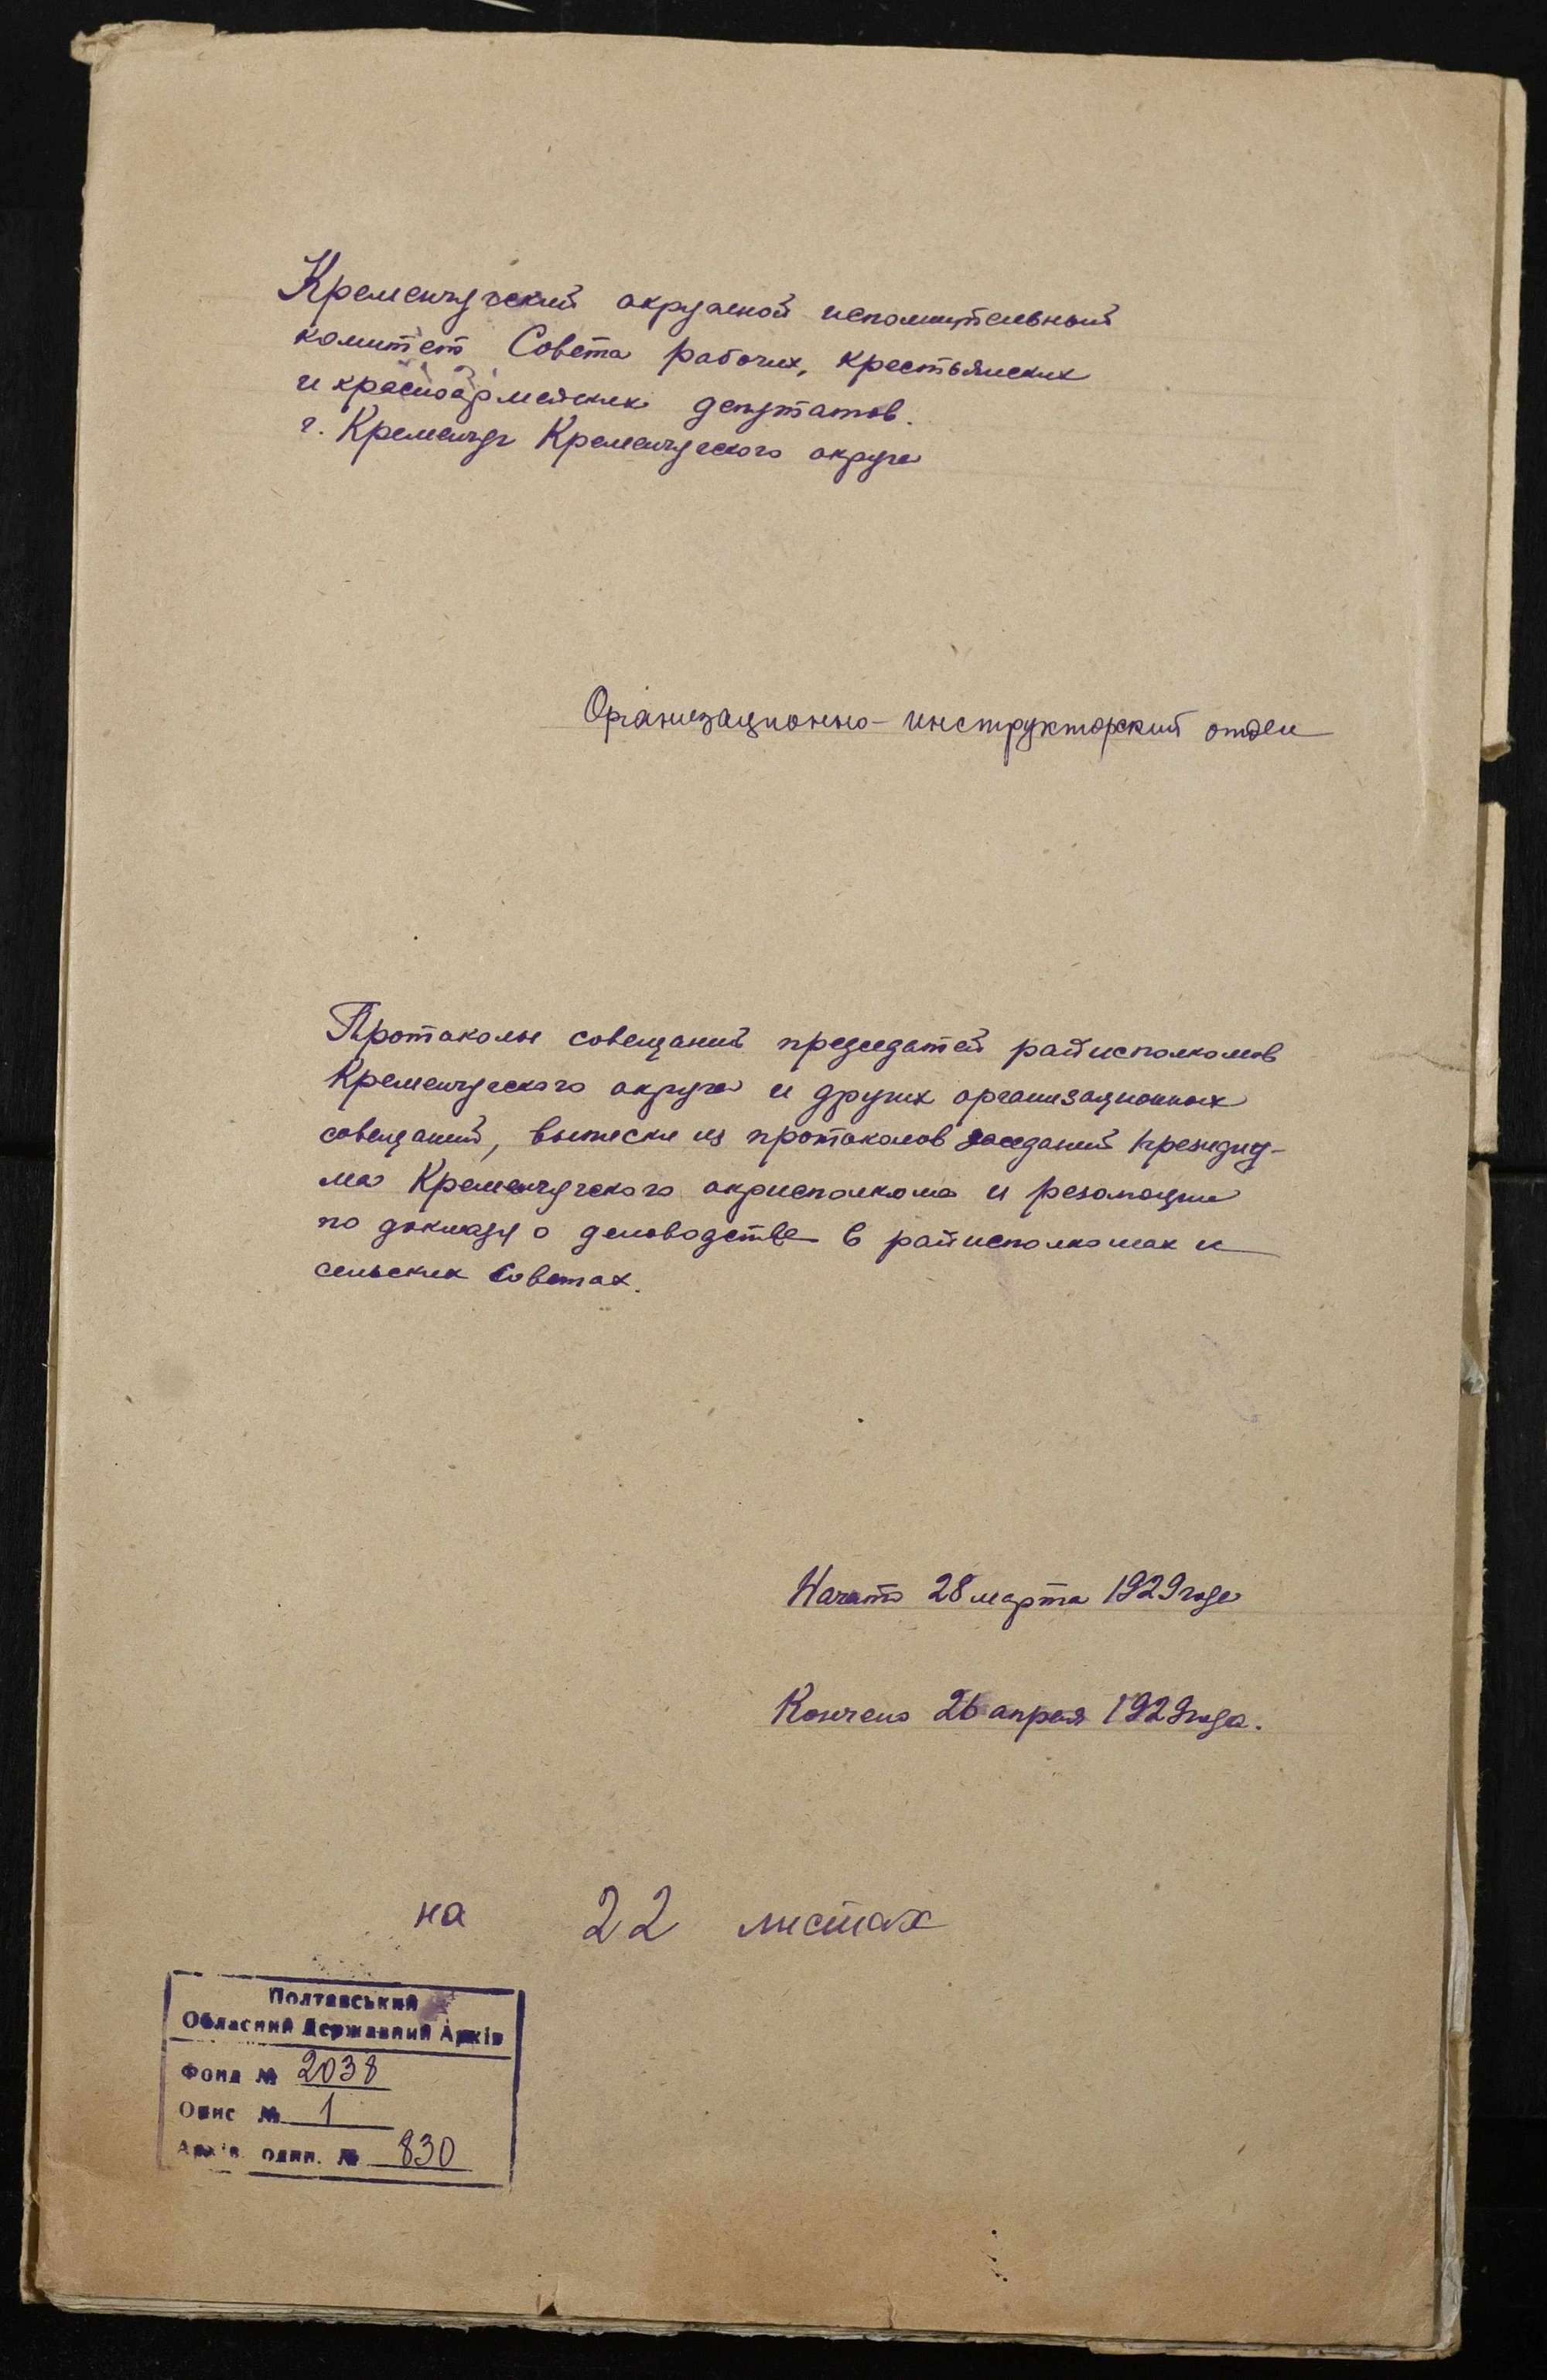 Кременчугский окружной исполнительный
комитет Совета рабочих, крестьянских
и красноармейских депутатов.
г. Кременчуг Кременчугского округа
Организационно-инструкторский отдел
Протоколы совещаний председателей райисполкомов
Кременчугского округа и других организационных
совещаний, выписки из протоколов заседаний президиу-
ма Кременчугского окрисполкома и резолюции
по докладу о деловодстве в райисполкомах и
сельских Советах.
Начато 28 марта 1929 года
Кончено 26 апреля 1929 года.
на 22 листах
Полтавський
Обласний Державний Архів
Фонд № 2038
Опис № 1
Архів. один. № 830